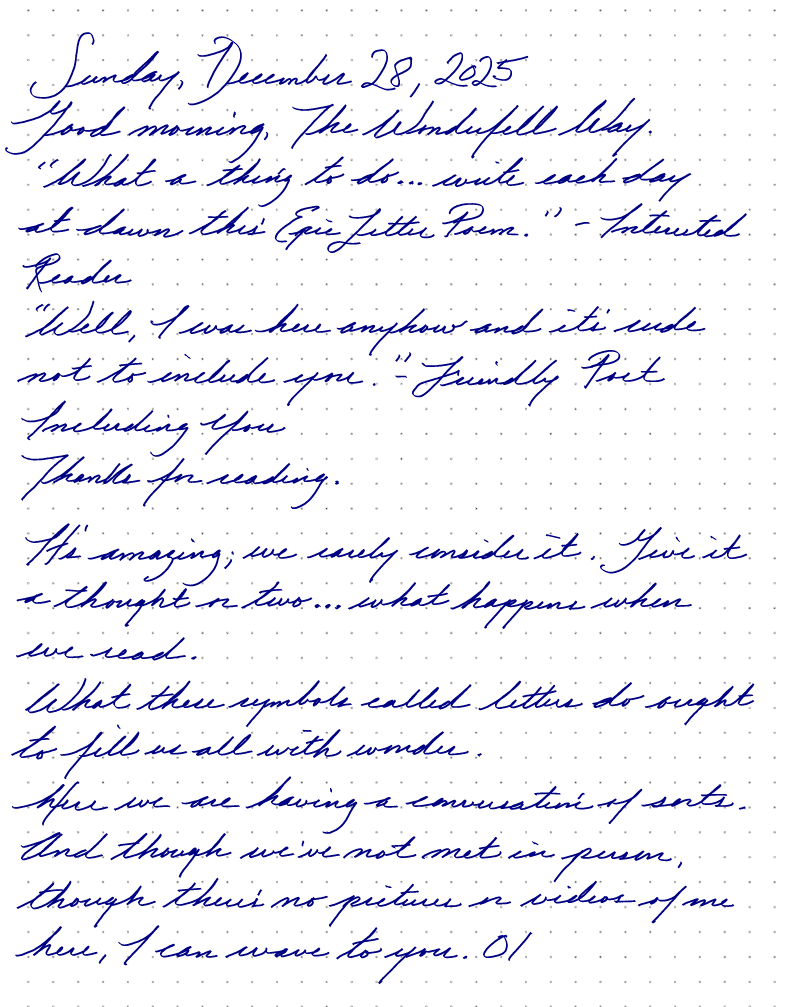 Sunday, December 28, 2025
Good morning, The Wonderfell Way.
"What a thing to do... write each day
at dawn this Epic Letter Poem." - Interested
Reader
"Well, I was here anyhow and it's rude
not to include you." - Friendly Poet
Including You
Thanks for reading.
It's amazing; we rarely consider it. Give it
a thought or two... what happens when
we read.
What these symbols called letters do ought
to fill us all with wonder.
Here we are having a conversation of sorts.
And though we've not met in person,
though there's no pictures or videos of me
here, I can wave to you. O/